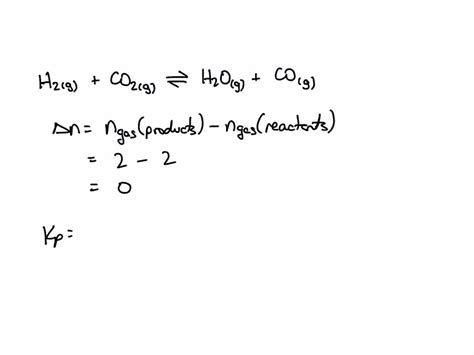 H₂(g) + CO₂(g) ⇌ H₂O(g) + CO(g)
Δn = ngas(products) - ngas(reactants)
= 2 - 2
= 0
Kp =